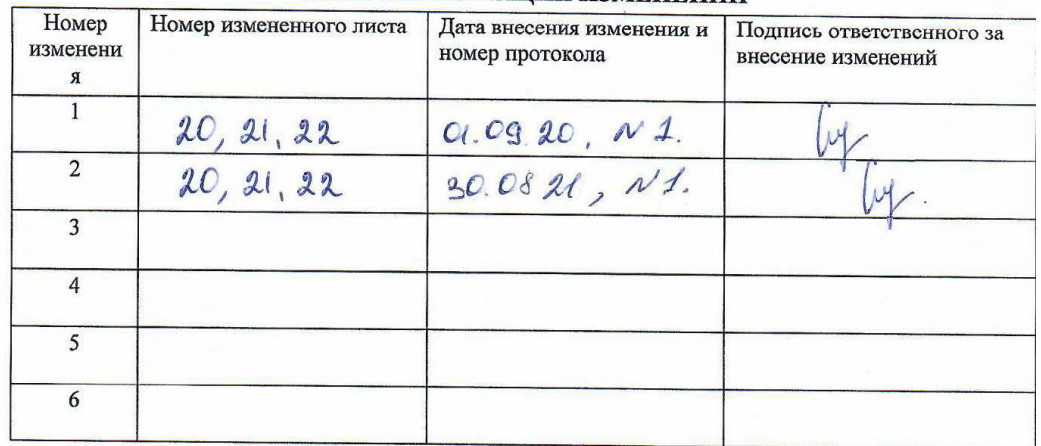 Номер изменени я
Номер измененного листа
Дата внесения изменения и номер протокола
Подпись ответственного за внесение изменений
1
20, 21, 22
01.09.20, N 1.
2
20, 21, 22
30.08 21, N 1.
3
4
5
6